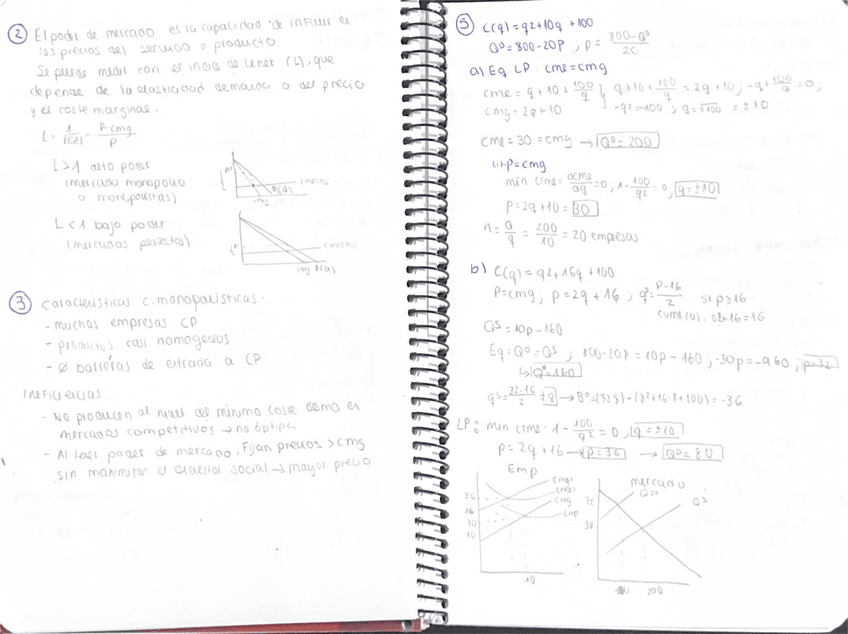 ② El poder de mercado es la capacidad de influir en
los precios del servicio o producto
Se puede medir con el índice de Lener (L), que
depende de la elasticidad demanda o del precio
y el coste marginal.
L = 1/|Ed| = P-cmg/P
L>1 alto poder
(mercado monopolio
o monopolistas)
L<1 bajo poder
(mercados perfectos)
③ Características c. monopolísticas.
- muchas empresas CP
- productos casi homogéneos
- ∅ barreras de entrada a CP
Ineficiencias
- No producen al nivel del mínimo coste como en
mercados competitivos → no óptima
- Al tener poder de mercado, fijan precios > cmg
sin maximizar el bienestar social → mayor precio
⑤ C(q) = q2+10q+100
Q^D = 800-20P ; p = 800-Q^D/20
a) Eq LP: cme=cmg
cme = q+10+100/q } q+10+100/q = 2q+10; -q+100/q=0;
cmg = 2q+10 -q2=-100; q=√100 = ±10
cme=30=cmg → Q^D=200
p=cmg
min cme = ∂cme/∂q = 0; 1-100/q2 = 0; q=±10
p=2q+10=30
n = Q/q = 200/10 = 20 empresas
b) C(q) = q2+16q+100
P=cmg; p=2q+16; q^s = P-16/2 si p≥16
Q^S = 10p-160
Eq = Q^D = Q^S; 800-20p = 10p-160; -30p = -960; p=32
↳ Q^D=160
q^s = 32-16/2 = 8 → B^o = (32·8)-(8²+16·8+100) = -36
LP: min cme: 1-100/q2 = 0; q=±10
p=2q+16 → p=36 → Q^D=80
Emp
mercado
36
26
30
10
10
Q^S
200